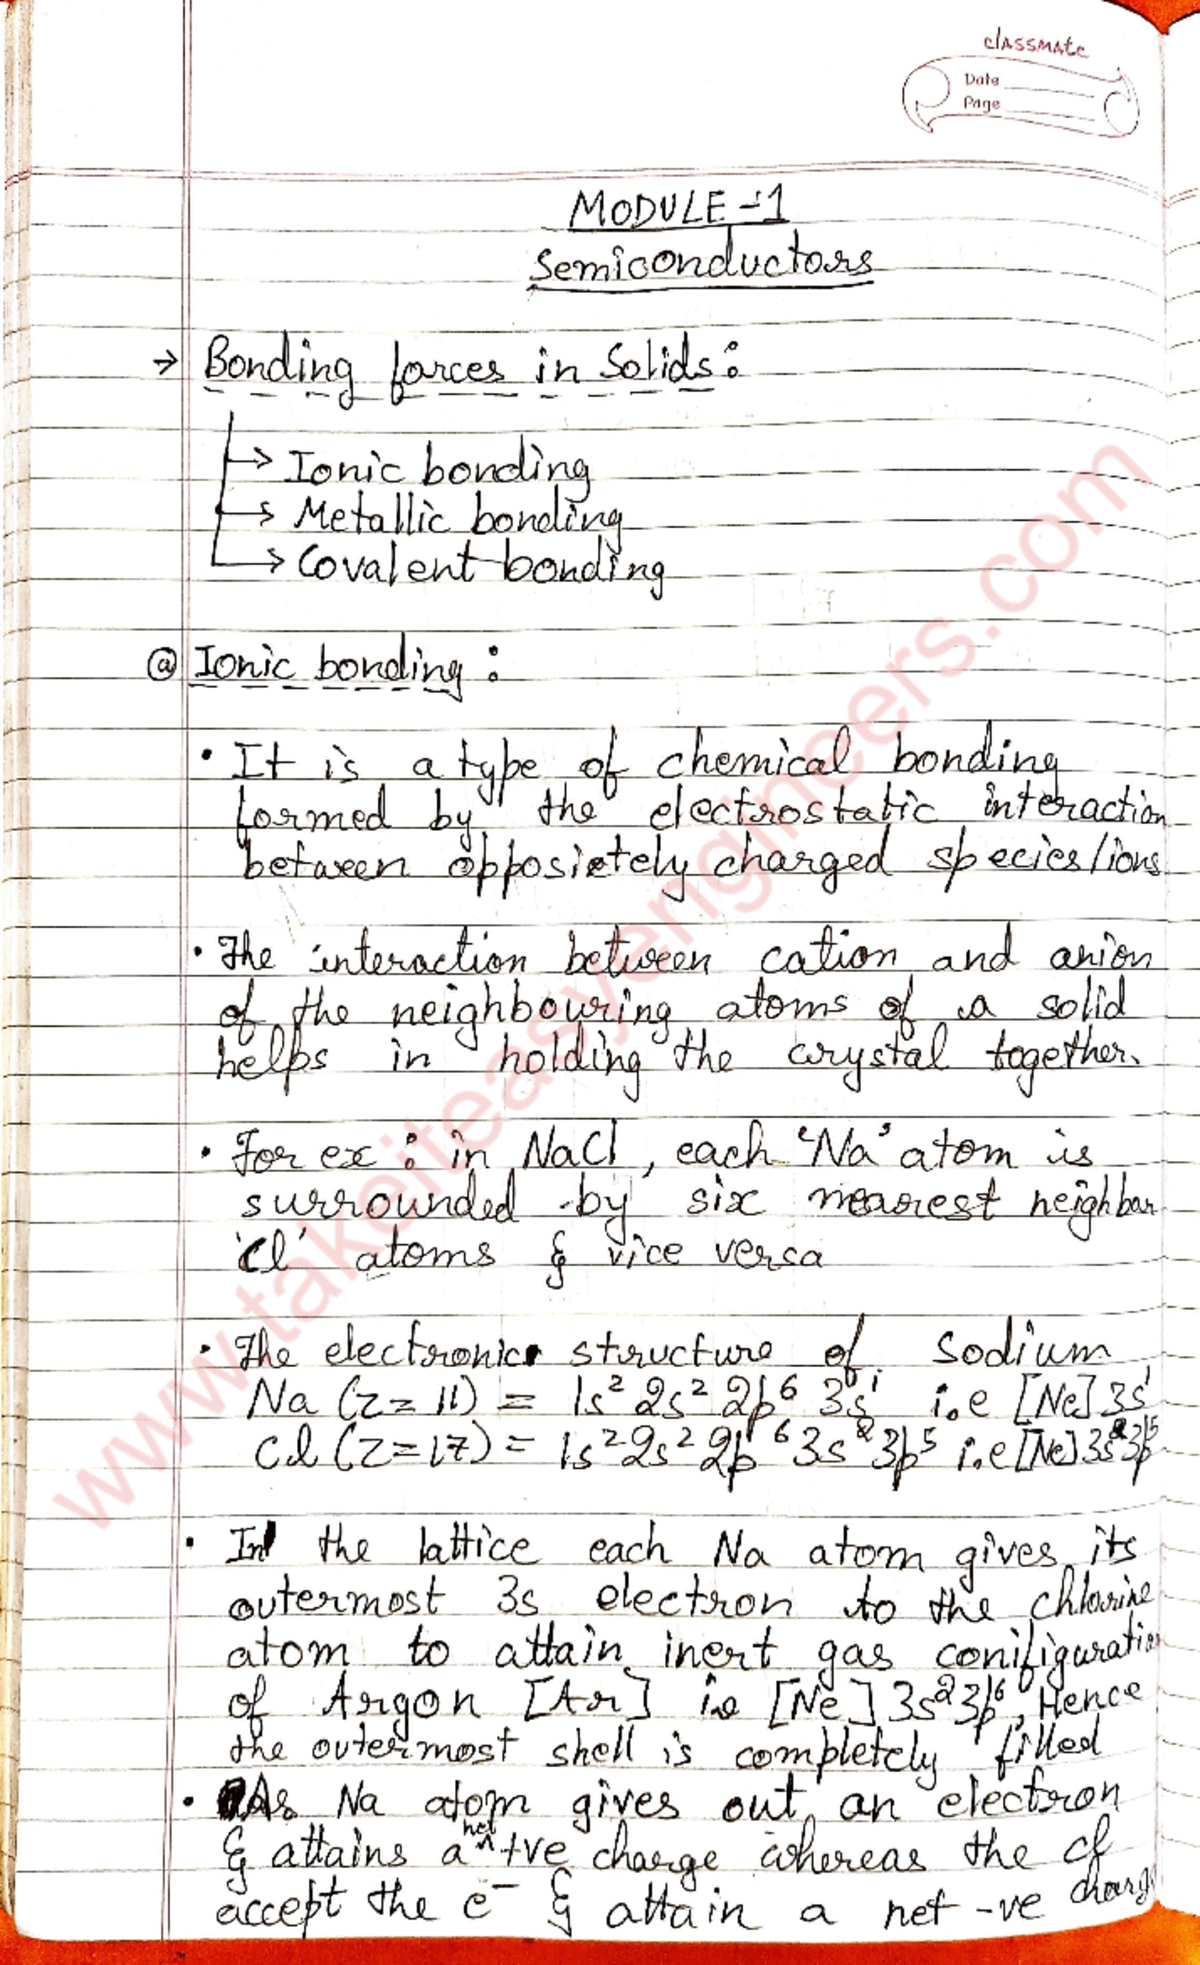 classmate
Date
Page
MODULE-1
Semiconductors
→ Bonding forces in Solids:
→ Ionic bonding
→ Metallic bonding
→ Covalent bonding
ⓐ Ionic bonding:
• It is a type of chemical bonding
formed by the electrostatic interaction
between opposietely charged species/ions
• The interaction between cation and anion
of the neighbouring atoms of a solid
helps in holding the crystal together.
• For ex: in NaCl, each 'Na' atom is
surrounded by six nearest neighbour
'Cl' atoms & vice versa
• The electronic structure of Sodium
Na (z=11) = 1s² 2s² 2p⁶ 3s¹ i.e [Ne] 3s¹
Cl (z=17) = 1s² 2s² 2p⁶ 3s² 3p⁵ i.e [Ne] 3s² 3p⁵
• In the lattice each Na atom gives its
outermost 3s electron to the chlorine
atom to attain inert gas configuration
of Argon [Ar] ie [Ne] 3s² 3p⁶, Hence
the outermost shell is completely filled
• As Na atom gives out an electron
& attains a net +ve charge whereas the cl
accept the e⁻ & attain a net -ve charge
www.takeiteasyengineers.com